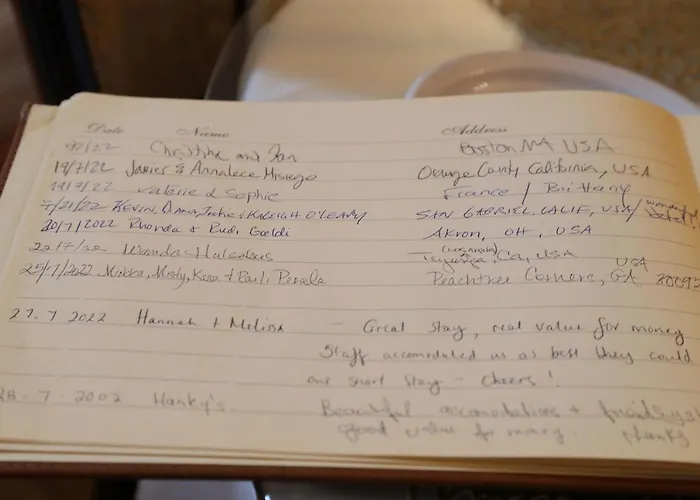 Date Name Address
/7/22 Christina and Ian Boston MA USA
19/7/22 Javier & Annalece Orange County California, USA
19/7/22 Valerie & Sophie France / Brittany
7/21/22 KEVIN, Dawn, & KALEIGH O'LEARY SAN GABRIEL, CALIF, USA / Wonderful
20/7/2022 Rhonda & Rudi Gaeldi Akron, OH, USA
22/7/22 Ca, USA
25/7/2022 Misty, + Peachtree Corners, GA 30092 USA
27.7 2022 Hannah + Melissa - Great stay, real value for money
Staff accomodated us as best they could
our short stay - cheers!
28-7-2002 Hanky's. Beautiful accomodations +
good value for money. thanks